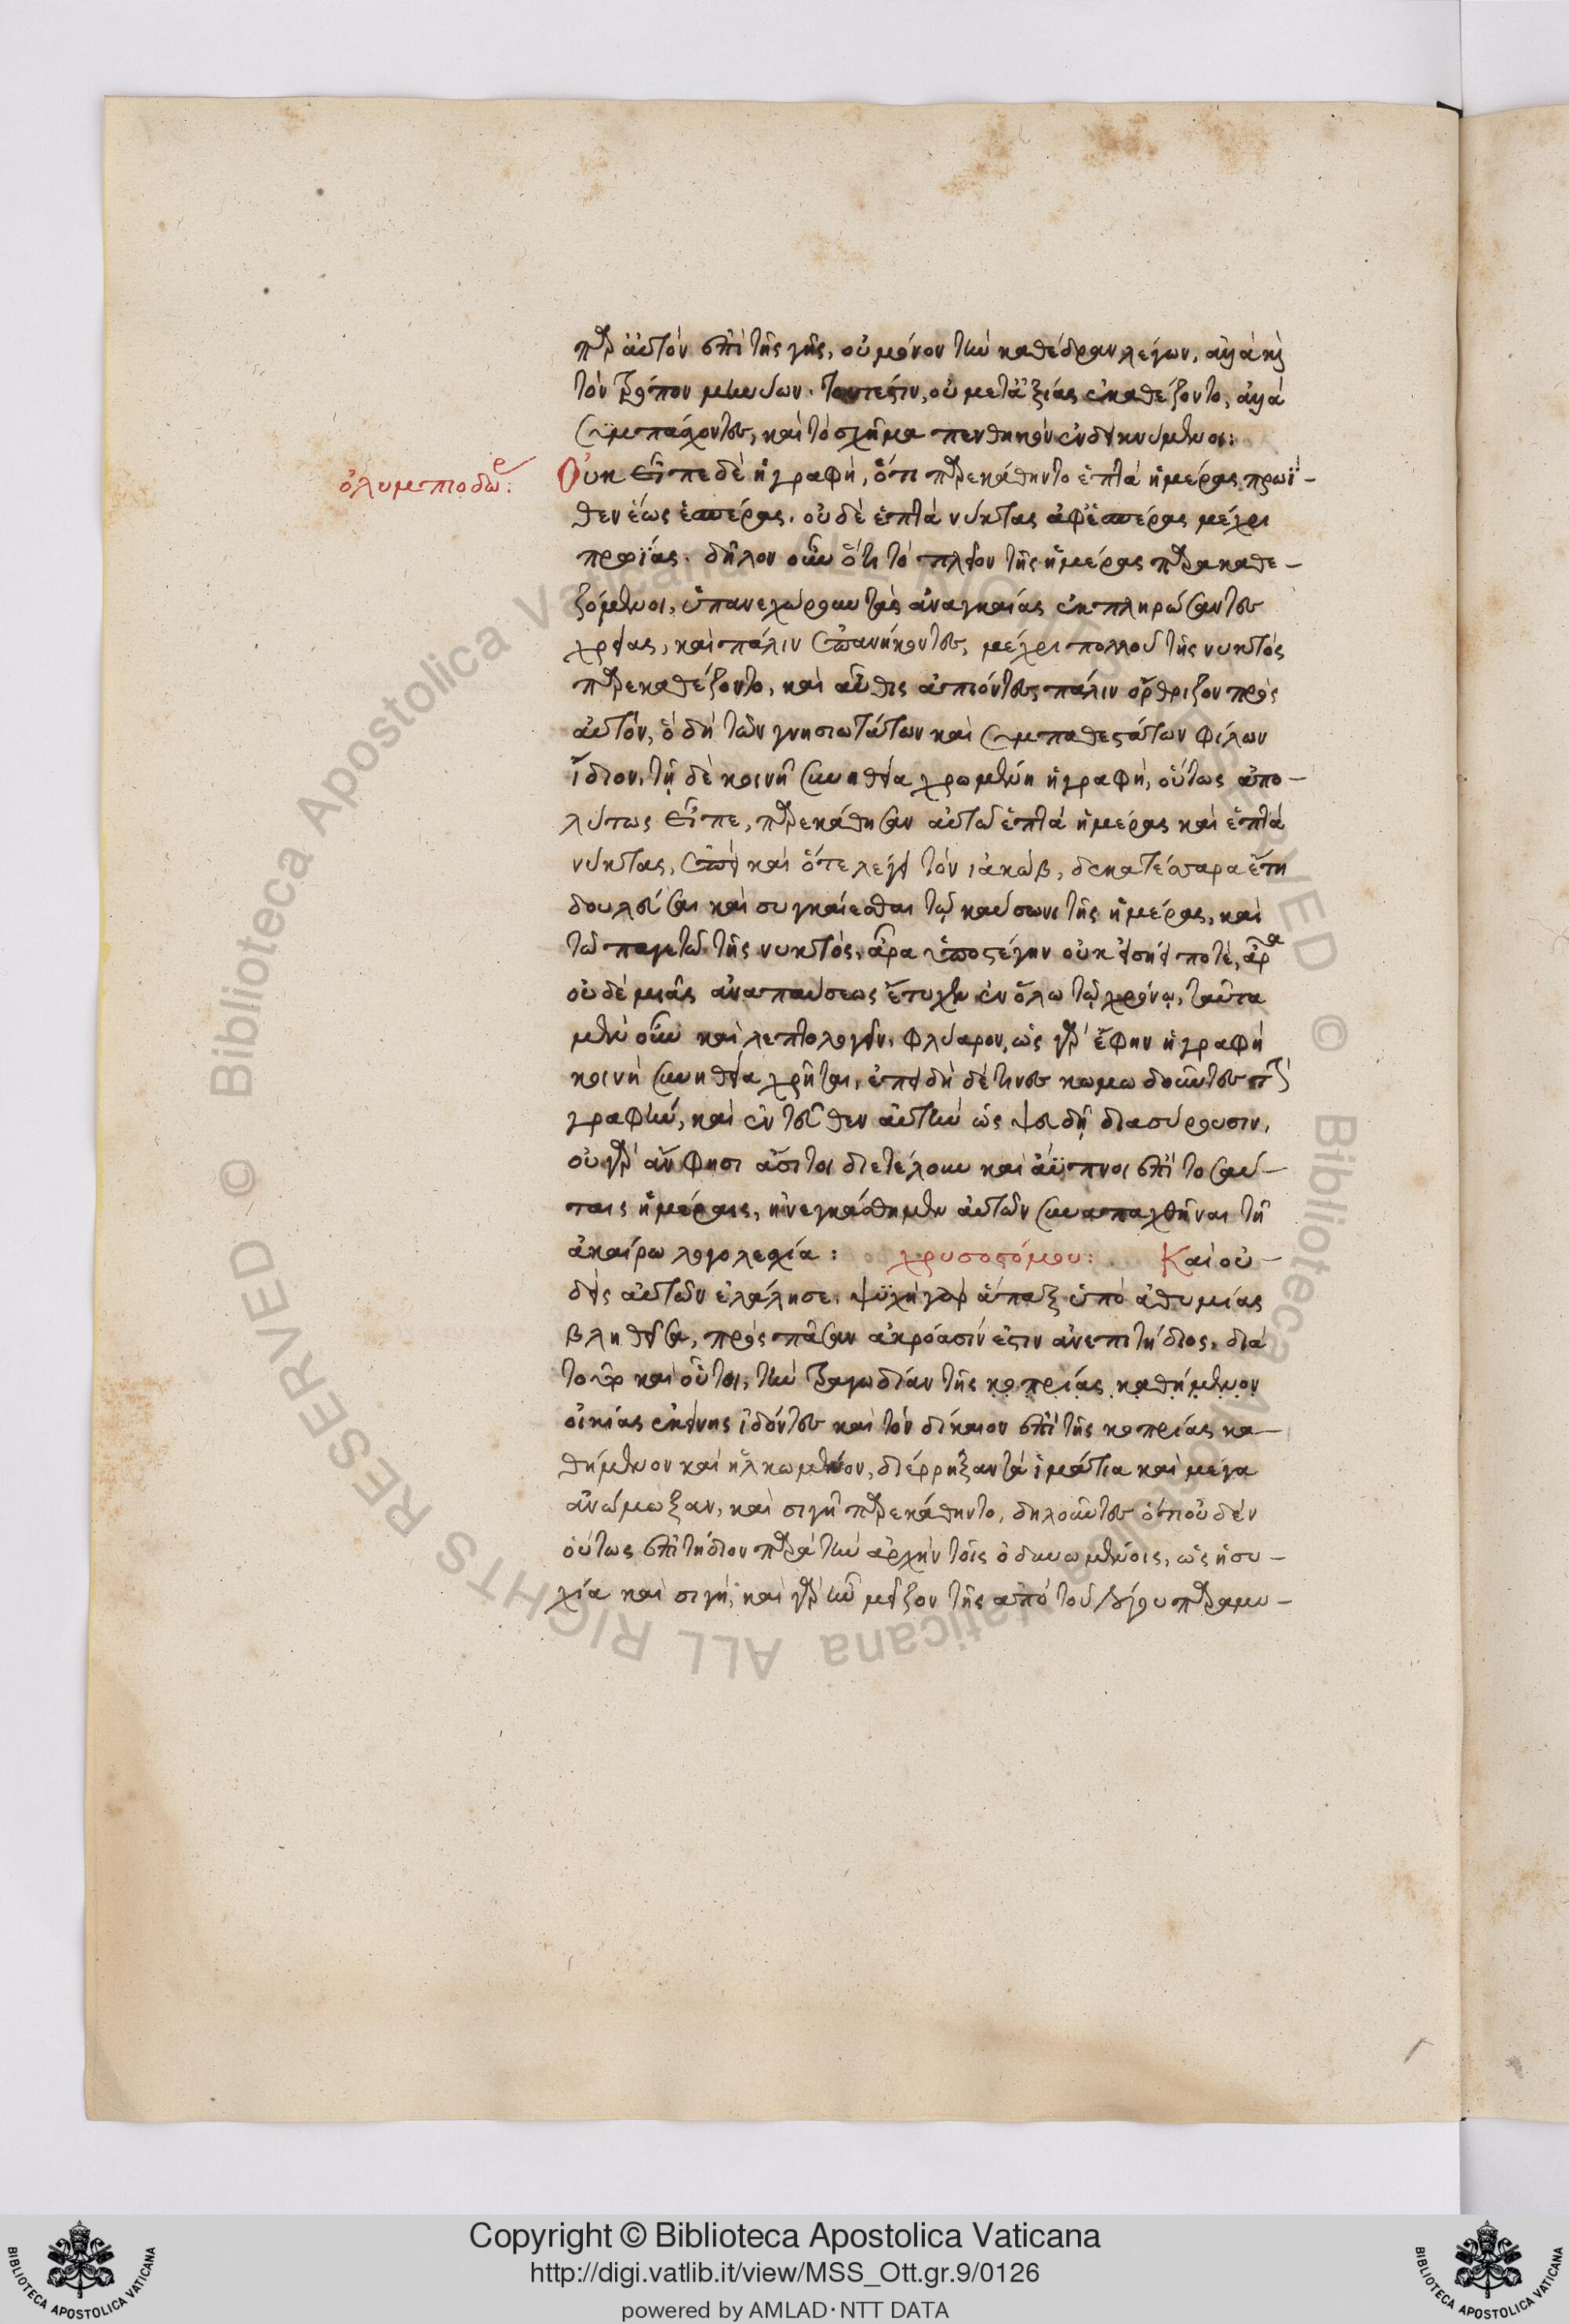 παρ' αὐτὸν ἐπὶ τῆς γῆς, οὐ μόνον τὴν καθέδραν λέγων, ἀλλὰ καὶ
τὸν τρόπον μηνύων. τουτέστιν, οὐ μετ' ἀξίας ἐκαθέζοντο, ἀλλὰ
συμπάσχοντες, καὶ τὸ σχῆμα πενθικὸν ἐνδεικνύμενοι:
ὀλυμπιοδώρ:
Οὐκ εἶπε δὲ ἡ γραφὴ, ὅτι παρεκάθηντο ἑπτὰ ἡμέρας πρωΐ-
θεν ἕως ἑσπέρας. οὐδὲ ἑπτὰ νύκτας ἀφ' ἑσπέρας μέχρι
πρωΐας. δῆλον οὖν ὅτι τὸ πλεῖον τῆς ἡμέρας παρακαθε-
ζόμενοι, ὑπανεχώρουν τὰς ἀναγκαίας ἐκπληρώσαντες
χρείας, καὶ πάλιν ἐπανήκοντες, μέχρι πολλοῦ τῆς νυκτὸς
παρεκαθέζοντο, καὶ αὖθις ἀπιόντες πάλιν ὤρθριζον πρὸς
αὐτόν, ὃ δὴ τῶν γνησιωτάτων καὶ συμπαθεστάτων φίλων
ἴδιον. τῇ δὲ κοινῇ συνηθεία χρωμένη ἡ γραφὴ, οὕτως ἀπο-
λύτως εἶπε, παρεκάθησαν αὐτῶ ἑπτὰ ἡμέρας καὶ ἑπτὰ
νύκτας, ἐπεὶ καὶ ὅτε λέγει τὸν ἰακώβ, δεκατέσσαρα ἔτη
δουλεῦσαι καὶ συγκαίεσθαι τῷ καύσωνι τῆς ἡμέρας, καὶ
τῶ παγετῶ τῆς νυκτός, ἆρα ὑπὸ στέγην οὐκ εἰσῄει ποτὲ, ἆρα
οὐδὲ μιᾶς ἀναπαύσεως ἔτυχεν ἐν ὅλω τῷ χρόνῳ. ταῦτα
μὲν οὖν καὶ λεπτολογεῖν, φλύαρον, ὡς γὰρ ἔφην ἡ γραφὴ
κοινῇ συνηθεία χρῆται, ἐπειδὴ δέ τινες κωμωδοῦντες τὴν
γραφὴν, καὶ ἐντεῦθεν αὐτὴν ὡς ψευδῆ διασύρουσιν,
οὐ γὰρ ἄν φησι ἄσιτοι διετέλουν καὶ ἄϋπνοι ἐπὶ τοσαύ-
ταις ἡμέραις, ἠνεγκάσθημεν αὐτῶν συναπαχθῆναι τῇ
ἀκαίρω λογολεσχία: χρυσοστόμου: Καὶ οὐ-
δεὶς αὐτῶν ἐλάλησε. ψυχὴ γὰρ ἅπαξ ὑπὸ ἀθυμίας
βληθεῖσα, πρὸς πᾶσαν ἀκρόασίν ἐστιν ἀνεπιτήδιος, διὰ
τοῦτο καὶ οὗτοι, τὴν τραγωδίαν τῆς κοπρίας καθήμενον
οἰκίας ἐκείνης ἰδόντες καὶ τὸν δίκαιον ἐπὶ τῆς κοπρίας κα-
θήμενον καὶ ἡλκωμένον, διέρρηξαν τὰ ἱμάτια καὶ μέγα
ἀνώμωξαν, καὶ σιγῇ παρεκάθηντο, δηλοῦντες ὅτι οὐδὲν
οὕτως ἐπιτήδιον παρὰ τὴν ἀρχὴν τοῖς ὀδυνωμένοις, ὡς ἡσυ-
χία καὶ σιγή, καὶ γὰρ ἦν μεῖζον τῆς ἀπὸ τοῦ λόγου παραμυ-
Copyright © Biblioteca Apostolica Vaticana
http://digi.vatlib.it/view/MSS_Ott.gr.9/0126
powered by AMLAD·NTT DATA
BIBLIOTECA APOSTOLICA VATICANA
BIBLIOTECA APOSTOLICA VATICANA
© Biblioteca Apostolica Vaticana ALL RIGHTS RESERVED
© Biblioteca Apostolica Vaticana ALL RIGHTS RESERVED